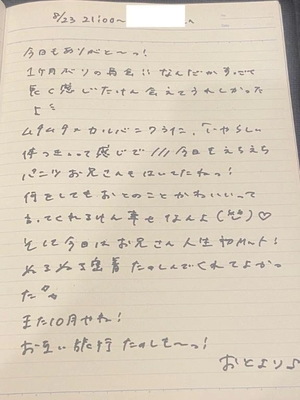 8/23 21:00～
今日もありがと～っ!
1ヶ月ぶりの再会!! なんだかすっごく
長く感じたけん会えてうれしかった
ムチムチ×カルバンクラインに、「いやらしい
体つき」って感じで///今日もえちえち
パンツお兄さんもはいてたねっ!
何をしてもおとのことかわいいって
言ってくれるけん幸せなんよ(笑)♡
そして今日はお兄さん人生初マット!
ぬるぬる密着たのしんでくれてよかっ
た
また10月やね!
お互い旅行たのしも～っ!
おとより♪